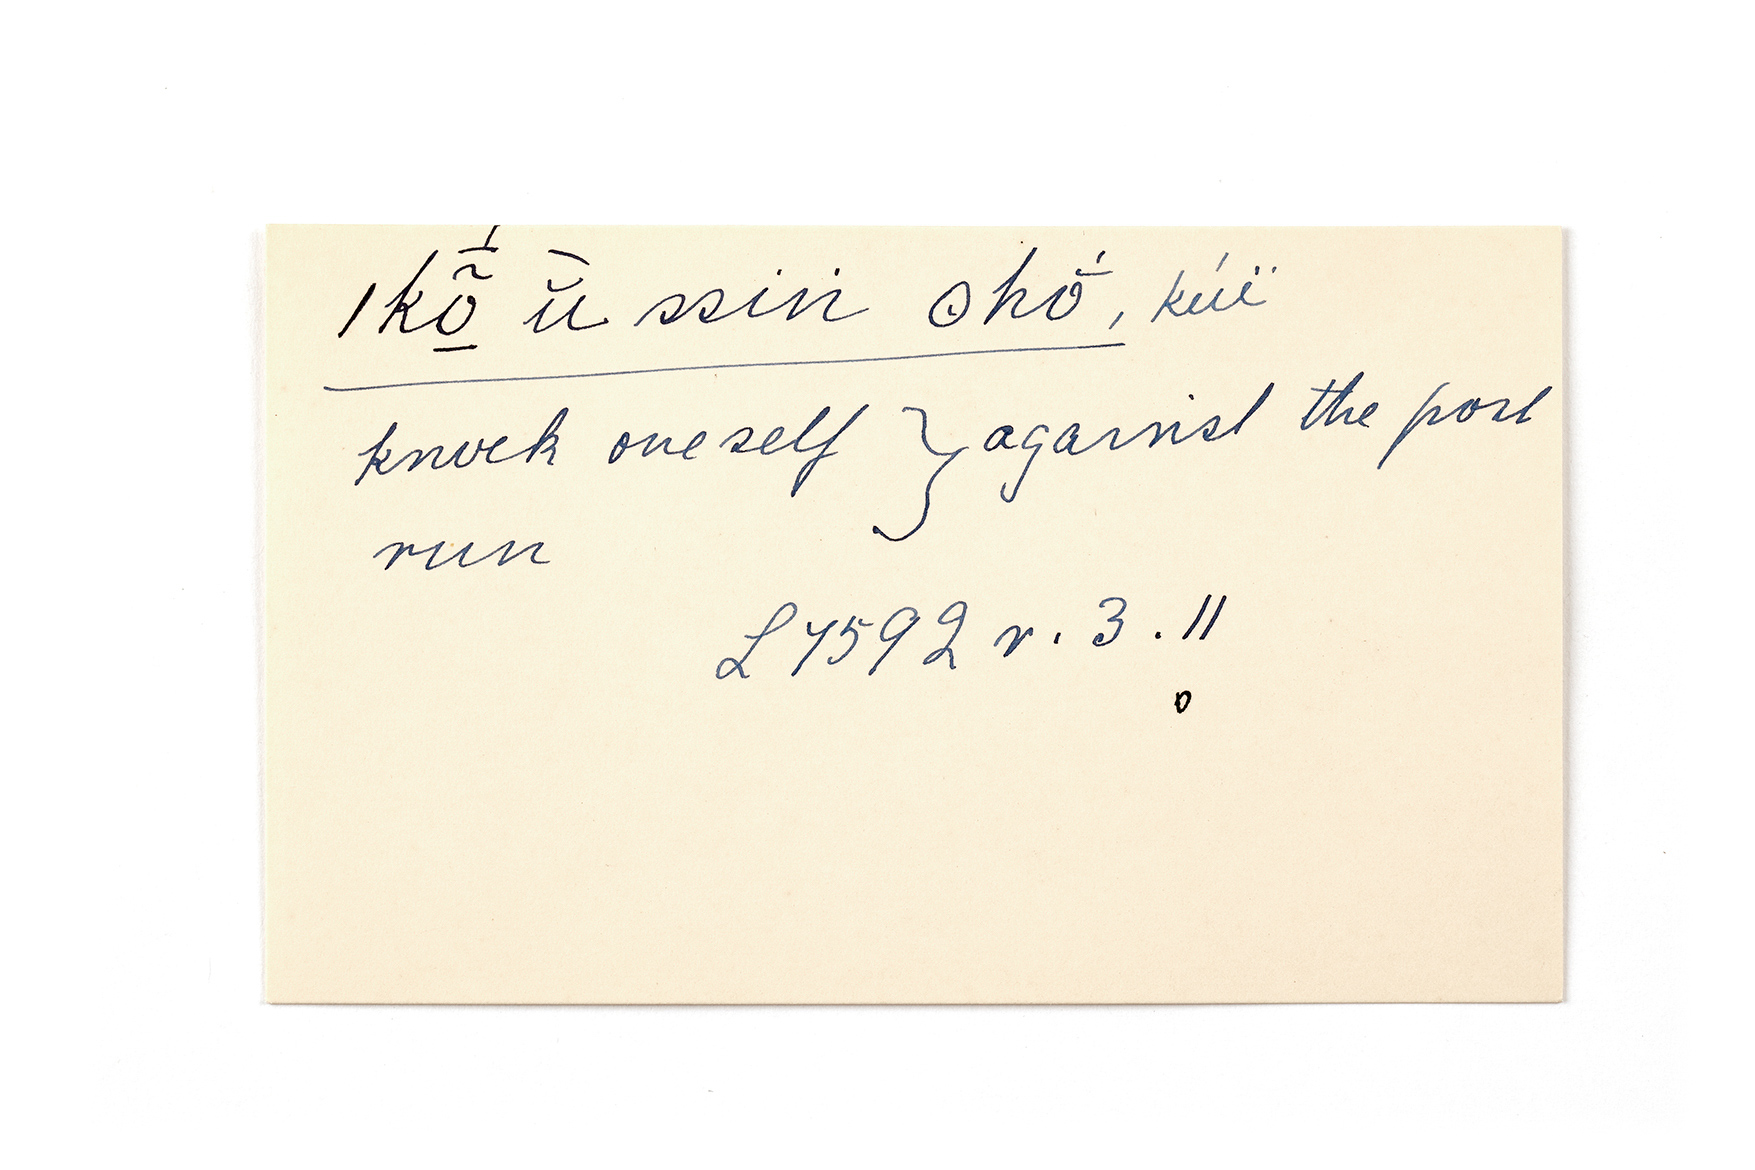 ǀkȭ̱́ ŭ̄ ssin ʘhṓ, kúï
knock oneself } against the post
run
L 7592 r. 3. ǁ
0